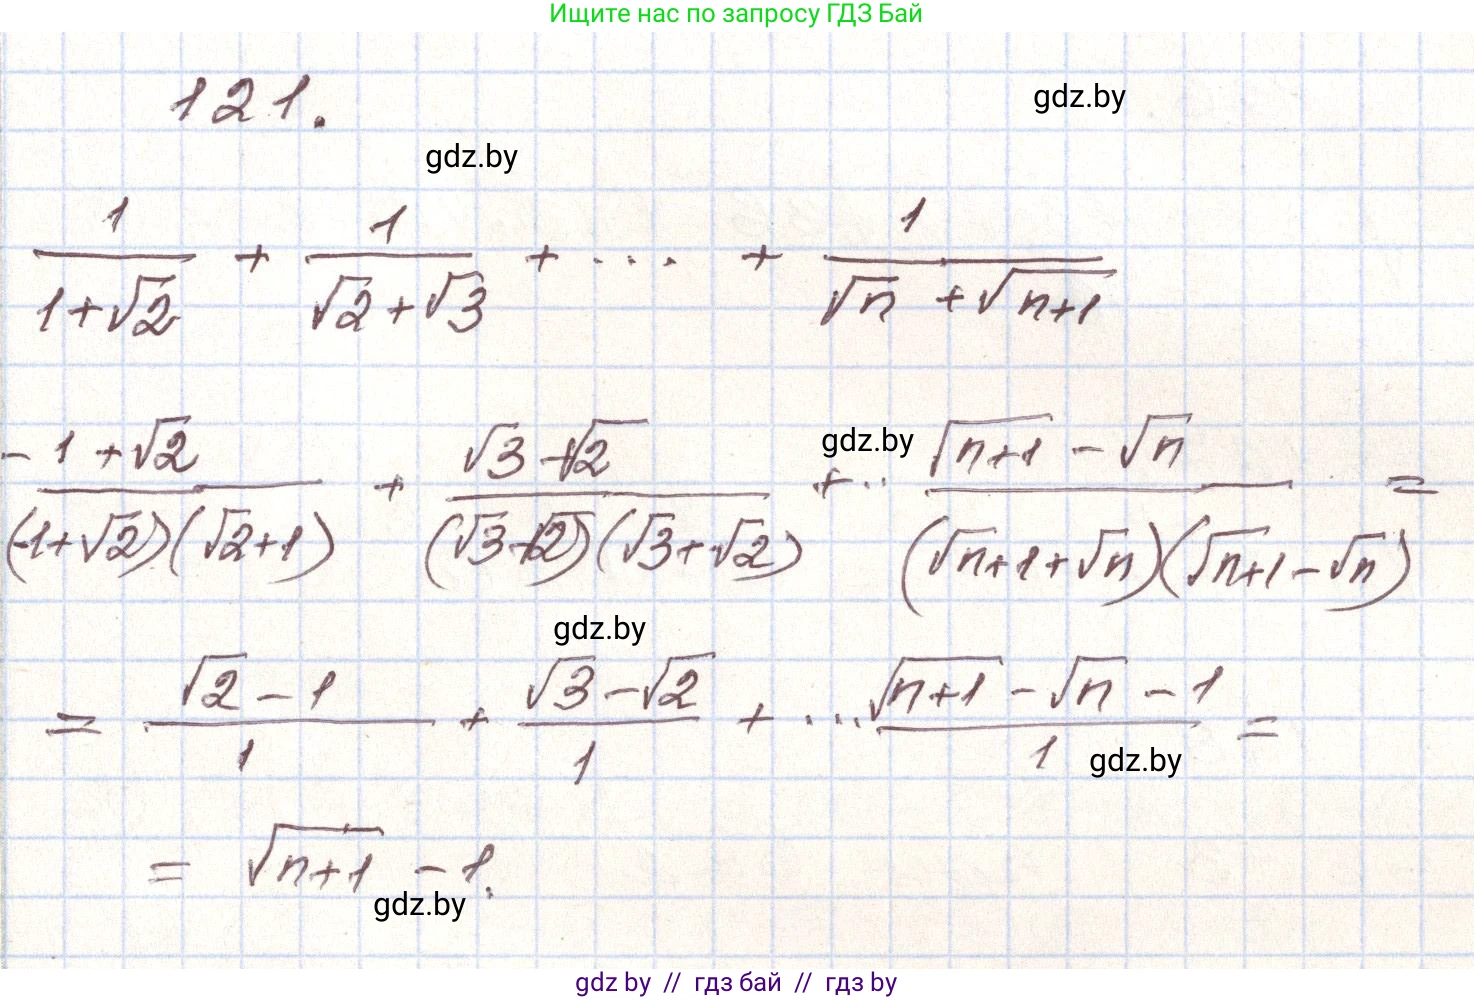 Ищите нас по запросу ГДЗ Бай
121.
gdz.by
gdz.by
1/(1+√2) + 1/(√2+√3) + ... + 1/(√n + √(n+1))
(-1+√2)/((-1+√2)(√2+1)) + (√3-√2)/((√3-√2)(√3+√2)) + .. (√(n+1) - √n)/((√n+1+√n)(√n+1-√n)) =
gdz.by
gdz.by
= (√2-1)/1 + (√3-√2)/1 + ... (√(n+1) - √n - 1)/1 =
gdz.by
= √(n+1) - 1.
gdz.by
gdz by // гдз бай // гдз by